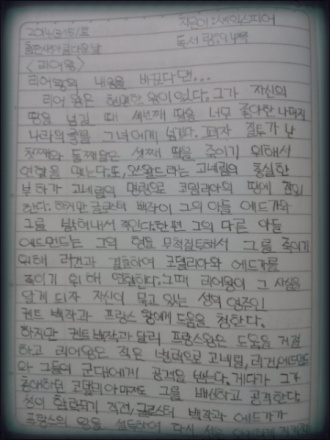 지은이: 셰익스피어
독서
<리어왕>
리어왕의 내용을 바꾼다면...
리어 왕은 현명한 왕이었다. 그가 자신의
땅을 넘길 때 세번째 딸을 너무 좋아한 나머지
나라의 를 그녀에게 넘겼다. 그러자 질투가 난
첫째와 둘째딸은 셋째 딸을 죽이기 위해서
연합을 맺는다. 또, 오스왈드라는 고네릴의 충실한
부하가 고네릴의 명령으로 코델리아의 땅에 잠입
한다. 하지만 백작이 그의 아들 에드가와
그를 밝혀내서 죽인다. 한편 그의 다른 아들
에드먼드는 그의 형을 질투해서 그를 죽이기
위해 리건과 결혼하여 코델리아와 에드가를
죽이기 위해 연합한다. 그때 리어왕이 그 사실을
알게 되자 자신이 묵고 있는 성의 영주인
켄트 백작과 프랑스 왕에게 도움을 청한다.
하지만 켄트 백작과 달리 프랑스왕은 도움을 거절
하고 리어왕은 적은 병력으로 고네릴, 리건, 에드먼드
와 그들의 군대에게 공격을 받는다. 게다가 그가
코델리아마저도 그를 배신하고 공격한다.
성이 함락되기 직전, 글로스터 백작과 에드가가
프랑스의 왕을 설득하여 다시